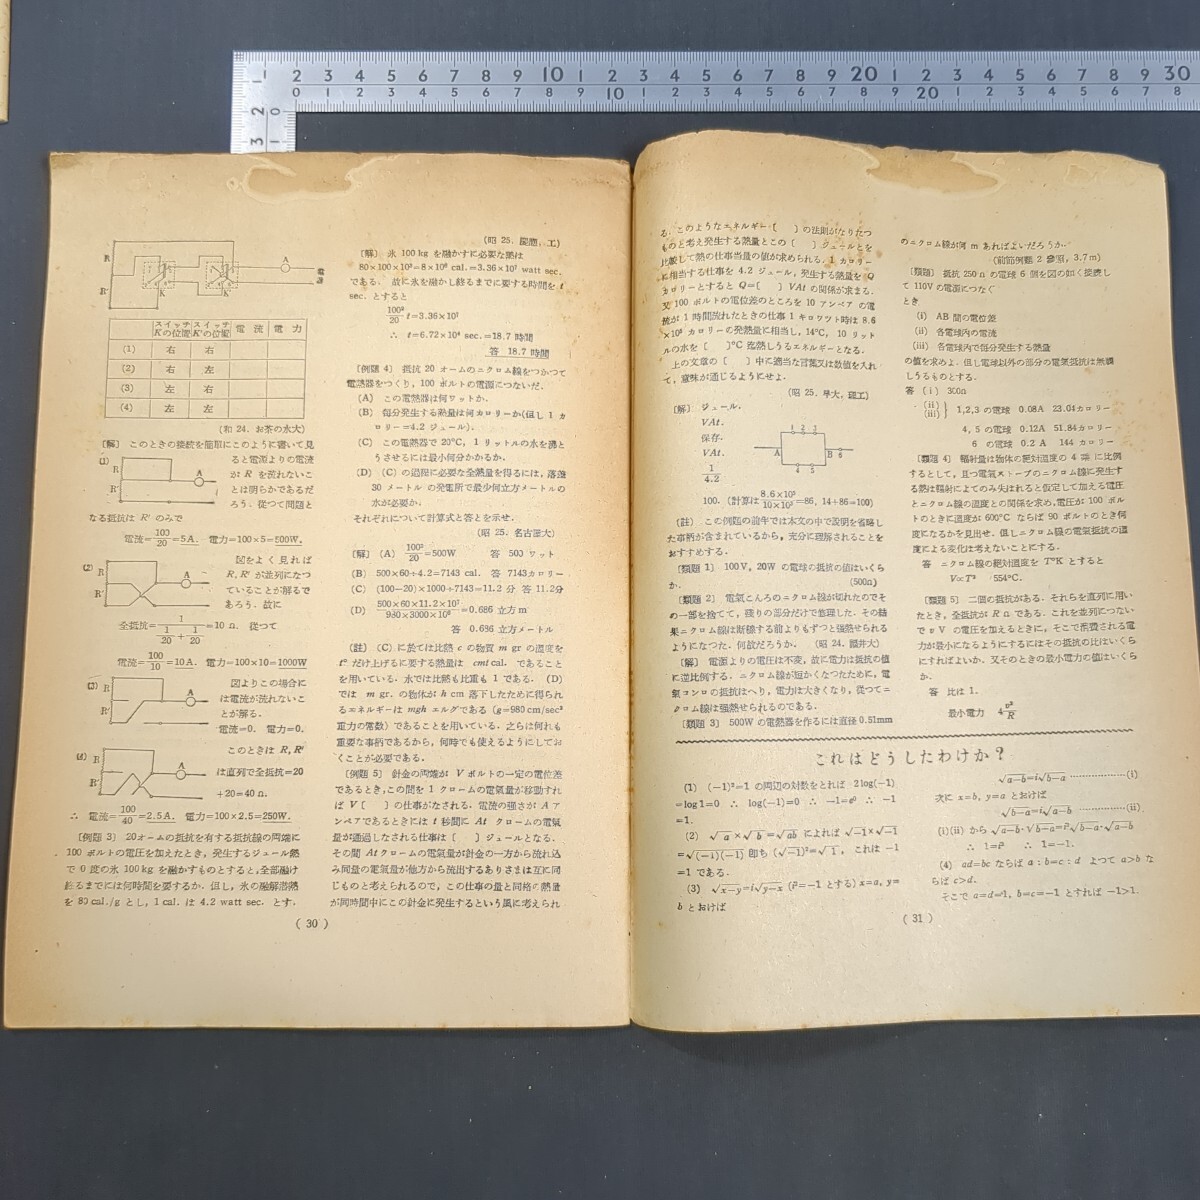 R
R'
K
K'
A
電源
スイッチKの位置 スイッチK'の位置 電流 電力
(1) 右 右
(2) 右 左
(3) 左 右
(4) 左 左
(和 24. お茶の水大)
〔解〕 このときの接続を簡単にこのように書いて見
ると電源よりの電流
が R を流れないこ
とは明らかであるだ
ろう. 従つて問題と
(1)
R
R'
A
なる抵抗は R' のみで
電流=100/20=5A. 電力=100×5=500W.
(2)
R
R'
A
図をよく見れば
R, R' が並列になつ
ていることが解るで
あろう. 故に
全抵抗=1/(1/20+1/20)=10 Ω. 従つて
電流=100/10=10A. 電力=100×10=1000W
(3)
R
R'
A
図よりこの場合に
は電流が流れないこ
とが解る.
電流=0. 電力=0.
(4)
R
R'
A
このときは R, R'
は直列で全抵抗=20
+20=40 Ω.
∴ 電流=100/40=2.5A. 電力=100×2.5=250W.
〔例題 3〕 20オームの抵抗を有する抵抗線の両端に
100 ボルトの電圧を加えたとき, 発生するジュール熱
で 0 度の氷 100 kg を融かすものとすると, 全部融け
終るまでには何時間を要するか. 但し, 氷の融解潜熱
を 80 cal./g とし, 1 cal. は 4.2 watt sec. とす.
(昭 25. 工)
〔解〕 氷 100 kg を融かすに必要な熱は
80×100×10³=8×10⁶ cal.=3.36×10⁷ watt sec.
である. 故に氷を融かし終るまでに要する時間を t
sec. とすると
100²/20 t=3.36×10⁷
∴ t=6.72×10⁴ sec.=18.7 時間
答 18.7 時間
〔例題 4〕 抵抗 20 オームのニクロム線をつかつて
電熱器をつくり, 100 ボルトの電源につないだ.
(A) この電熱器は何ワットか.
(B) 毎分発生する熱量は何カロリーか(但し 1 カ
ロリー=4.2 ジュール).
(C) この電熱器で 20°C, 1 リットルの水を沸と
うさせるには最小何分かかるか.
(D) (C) の過程に必要な全熱量を得るには, 落差
30 メートル の発電所で最少何立方メートルの
水が必要か.
それぞれについて計算式と答とを示せ.
(昭 25. 名古屋大)
〔解〕 (A) 100²/20=500W 答 500 ワット
(B) 500×60÷4.2=7143 cal. 答 7143カロリー
(C) (100-20)×1000÷7143=11.2 分 答 11.2分
(D) 500×60×11.2×10⁷/980×3000×10⁶=0.686 立方 m
答 0.686 立方メートル
(註) (C) に於ては比熱 c の物質 m gr の温度を
t° だけ上げるに要する熱量は cmt cal. であること
を用いている. 水では比熱も比重も 1 である. (D)
では m gr. の物体が h cm 落下したために得られ
るエネルギーは mgh エルグである (g=980 cm/sec²
重力の常数) であることを用いている. 之らは何れも
重要な事柄であるから, 何時でも使えるようにしてお
くことが必要である.
〔例題 5〕 針金の両端が V ボルトの一定の電位差
であるとき, この間を 1 クロームの電気量が移動すれ
ば V〔 〕の仕事がなされる. 電流の強さが A ア
ンペアであるときには t 秒間に At クロームの電気
量が通過しなされる仕事は〔 〕ジュールとなる.
その間 At クロームの電気量が針金の一方から流れ込
み同量の電気量が他方から流出するありさまは互に同
じものと考えられるので, この仕事の量と同格の熱量
が同時間中にこの針金に発生するという風に考えられ
( 30 )
る. このようなエネルギー〔 〕の法則がなりたつ
ものと考え発生する熱量とこの〔 〕ジュールとを
比較して熱の仕事当量の値が求められる. 1 カロリー
に相当する仕事を 4.2 ジュール, 発生する熱量を Q
カロリーとすると Q=〔 〕VAt の関係が求まる.
又 100 ボルトの電位差のところを 10 アンペア の電
流が 1 時間流れたときの仕事 1 キロワツト時は 8.6
×10⁵ カロリーの発熱量に相当し, 14°C, 10 リット
ルの水を〔 〕°C 迄熱しうるエネルギーとなる.
上の文章の〔 〕中に適当な言葉又は数値を入れ
て, 意味が通じるようにせよ.
(昭 25. 早大, 理工)
〔解〕 ジュール.
VAt.
保存.
VAt.
1/4.2
1 2 3
A B 6
4 5
100. (計算は 8.6×10⁵/10×10³=86, 14+86=100)
(註) この例題の前半では本文の中で説明を省略し
た事柄が含まれているから, 充分に理解されることを
おすすめする.
〔類題 1〕 100V, 20W の電球の抵抗の値はいくら
か. (500Ω)
〔類題 2〕 電気こんろのニクロム線が切れたのでそ
の一部を捨てて, 残りの部分だけで修理した. その結
果ニクロム線は断線する前よりもずつと強熱せられる
ようになつた. 何故だろうか. (昭 24. 大)
〔解〕 電源よりの電圧は不変, 故に電力は抵抗の値
に逆比例する. ニクロム線が短かくなつたために, 電
気コンロの抵抗はへり, 電力は大きくなり, 従つてニ
クロム線は強熱せられるのである.
〔類題 3〕 500W の電熱器を作るには直径 0.51mm
のニクロム線が何 m あればよいだろうか.
(前節例題 2 参照, 3.7m)
〔類題〕 抵抗 250Ω の電球 6 個を図の如く接続し
て 110V の電源につなぐ
とき
(i) AB 間の電位差
(ii) 各電球内の電流
(iii) 各電球内で毎分発生する熱量
の値を求めよ. 但し電球以外の部分の電気抵抗は無視
しうるものとする.
答 (i) 300Ω
(ii)
(iii) } 1,2,3 の電球 0.08A 23.04カロリー
4, 5 の電球 0.12A 51.84カロリー
6 の電球 0.2 A 144 カロリー
〔類題 4〕 輻射量は物体の絶対温度の 4 乗 に比例
するとして, 且つ電気ストーブのニクロム線に発生す
る熱は輻射によてのみ失はれると仮定して加える電圧
とニクロム線の温度との関係を求め, 電圧が 100 ボル
トのときに温度が 600°C ならば 90 ボルトのとき何
度になるかを見出せ. 但しニクロム線の電気抵抗の温
度による変化は考えないことにする.
答 ニクロム線の絶対温度を T°K とすると
V∝T² 554°C.
〔類題 5〕 二個の抵抗がある. それらを直列に用い
たとき, 全抵抗が RΩ である. これを並列につない
で v V の電圧を加えるときに, そこで消費される電
力が最小になるようにするにはその抵抗の比はいくら
にすればよいか. 又そのときの最小電力の値はいくら
か.
答 比は 1.
最小電力 4v²/R
これはどうしたわけか?
(1) (-1)²=1 の両辺の対数をとれば 2log(-1)
=log1=0 ∴ log(-1)=0 ∴ -1=e⁰ ∴ -1
=1.
(2) √a×√b=√ab によれば √-1×√-1
=√(-1)(-1) 即ち (√-1)²=√1, これは -1
=1 である.
(3) √x-y=i√y-x (i²=-1 とする) x=a, y=
b とおけば
√a-b=i√b-a ……………(i)
次に x=b, y=a とおけば
√b-a=i√a-b ……………(ii).
(i)(ii) から √a-b・√b-a=i²√b-a・√a-b
∴ 1=i² ∴ 1=-1.
(4) ad=bc ならば a:b=c:d よつて a>b な
らば c>d.
そこで a=d=1, b=c=-1 とすれば -1>1.
( 31 )